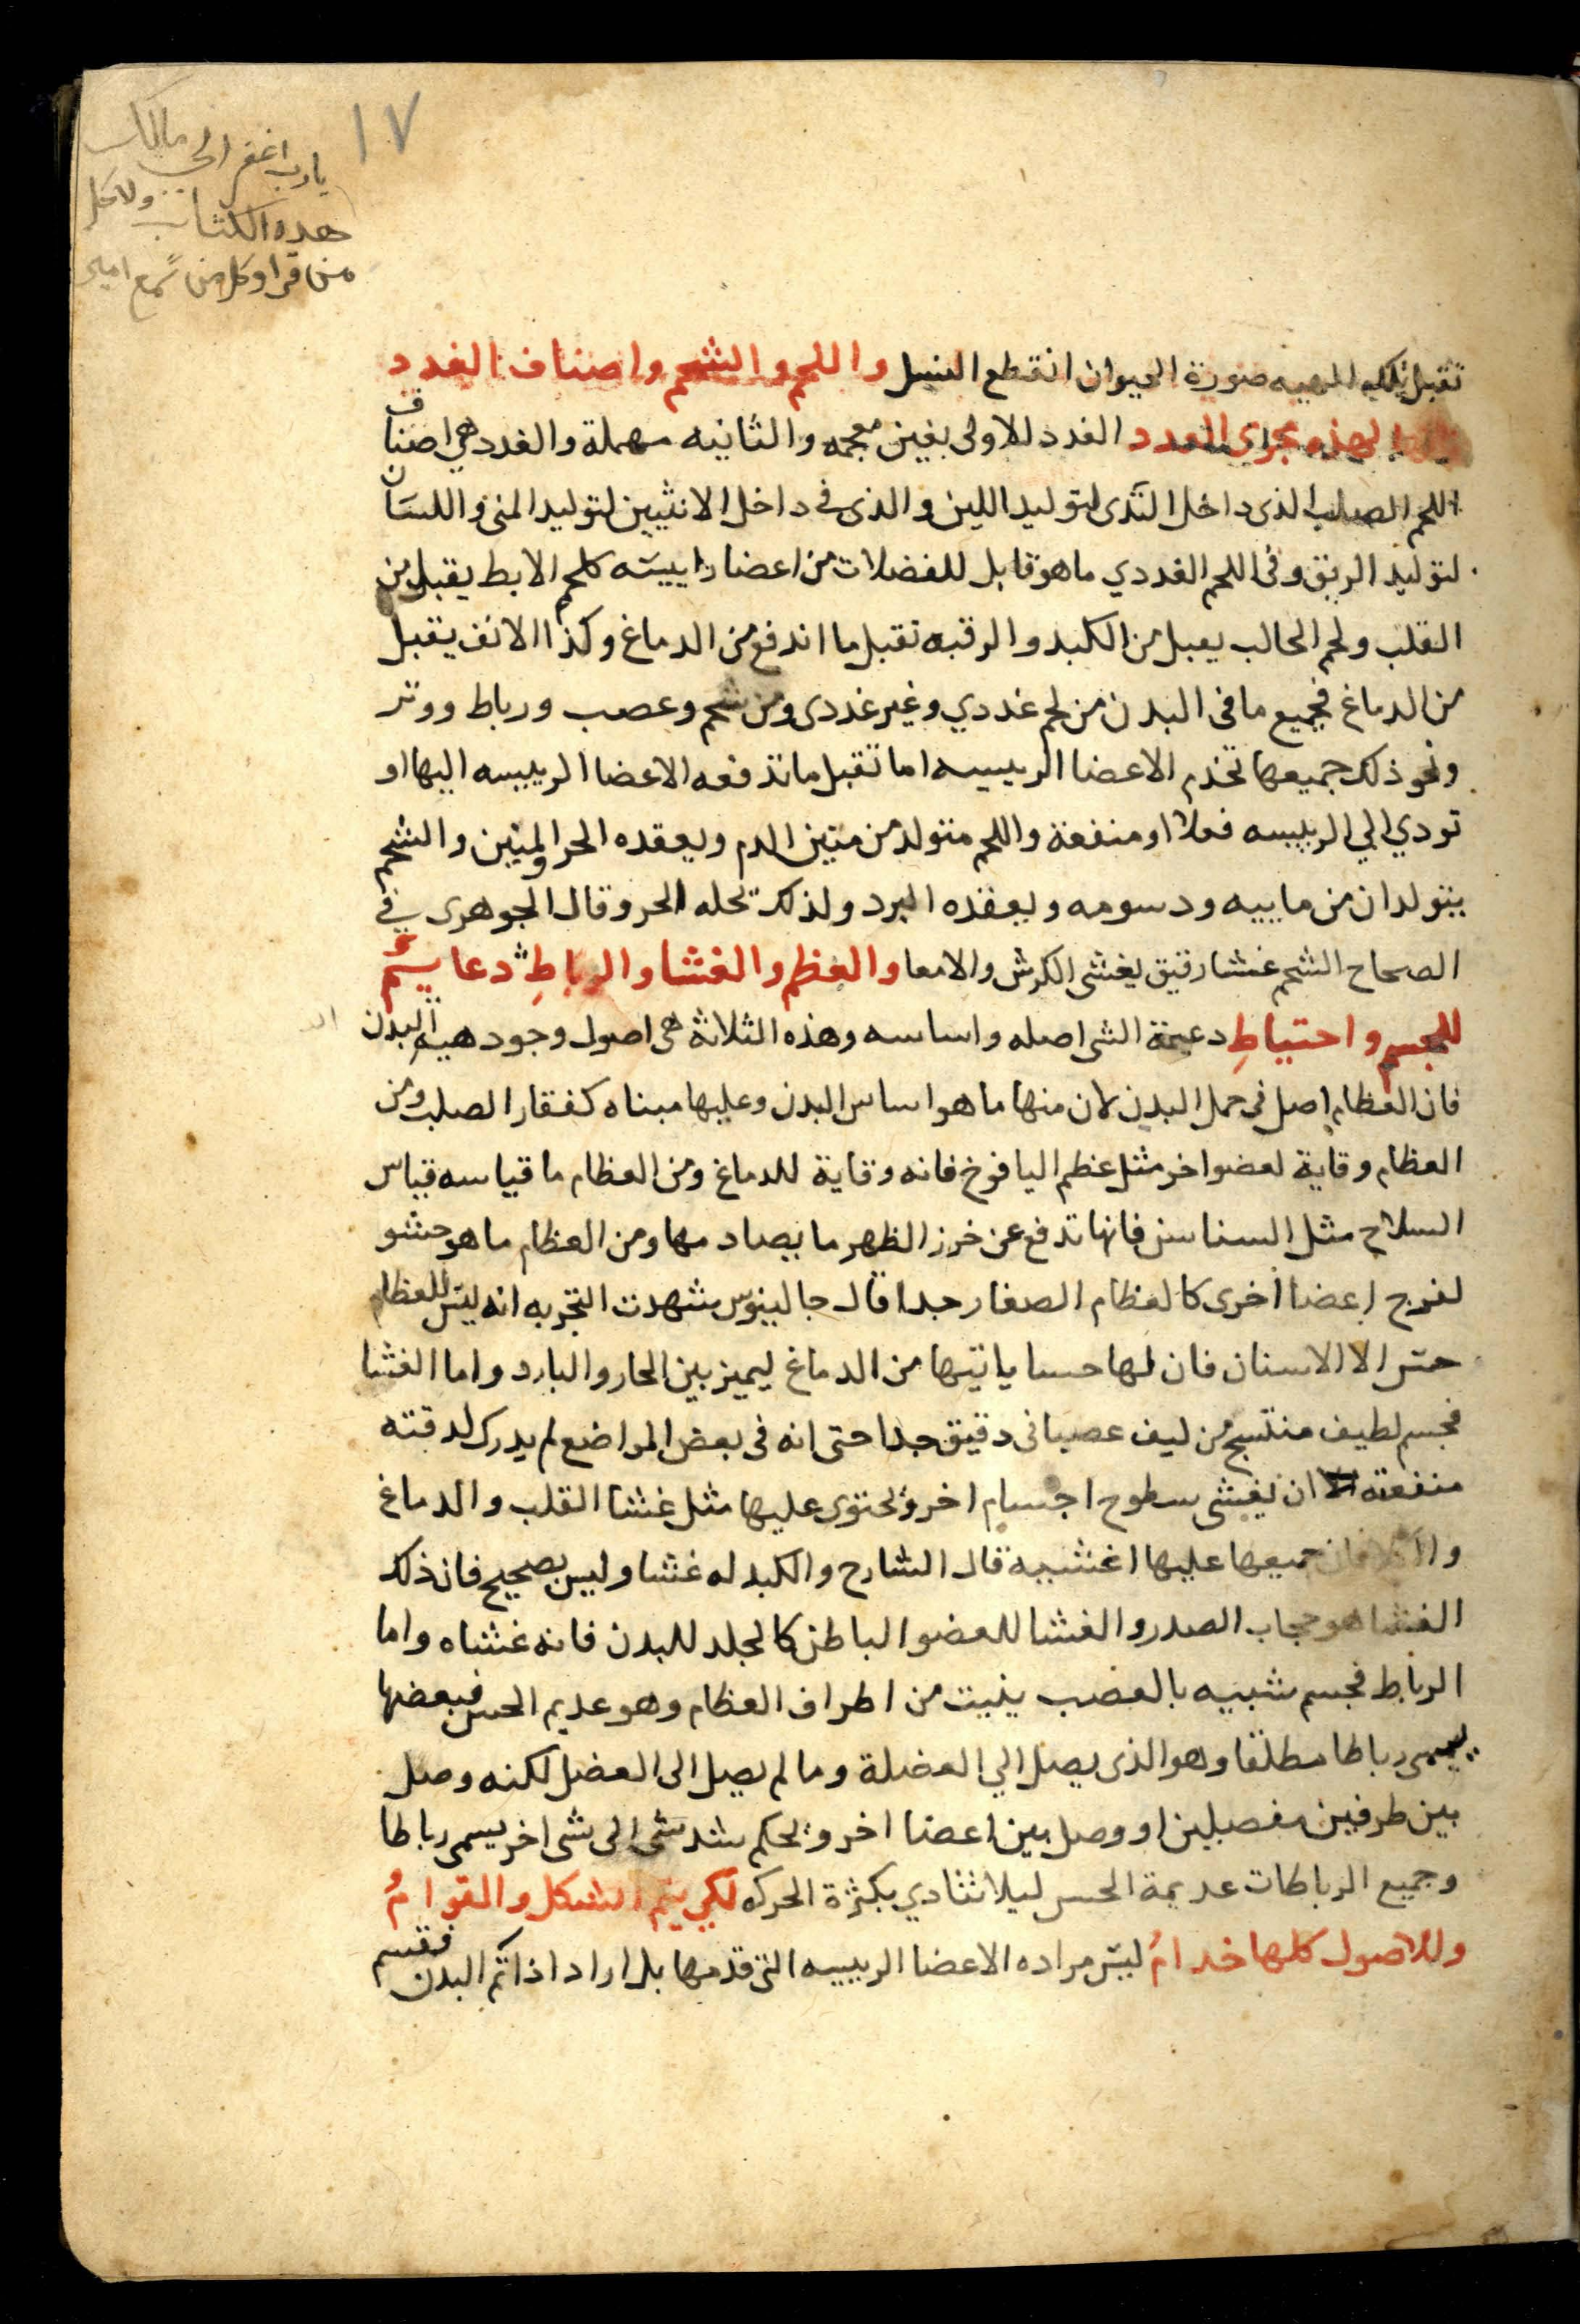 ١٧
يا رب اغفر الى مالك
هده الكتاب ولكل
من قرا وكل من سمع امين
تقبل تلك المهييه صورة الحيوان انقطع النسل واللحم والشحم واصناف الغدد
لهذه مجرى العدد الغدد الاولى بغين معجمه والثانيه مهملة والغدد هي اصناف
اللحم الصلب الذى داخل الثدى لتوليد اللبن والذى في داخل الانثيين لتوليد المنى واللسان
لتوليد الريق وفى اللحم الغددي ماهو قابل للفضلات من اعضا راييسه كلحم الابط يقبل من
القلب ولحم الحالب يقبل من الكبد والرقبه تقبل ما اندفع من الدماغ وكذا الانف يقبل
من الدماغ فجميع ما فى البدن من لحم غددي وغير غددى ومن شحم وعصب ورباط ووتر
ونحو ذلك جميعها تخدم الاعضا الرييسيه اما تقبل ما تدفعه الاعضا الرييسه اليها او
تودي الي الرييسه فعلا او منفعة واللحم متولد من متين الدم ويعقده الحر والمتين والشحم
يتولدان من ماييه ودسومه ويعقده البرد ولذلك تحله الحر وقال الجوهرى في
الصحاح الشحم غشا رقيق يغشى الكرش والامعا والعظم والغشا والرباط دعايم
للجسم واحتياط دعيمة الشى اصله واساسه وهذه الثلاثة هى اصول وجود هيه البدن
فان العظام اصل فى حمل البدن لان منها ما هو اساس البدن وعليها مبناه كفقار الصلب ومن
العظام وقاية لعضو اخر مثل عظم اليافوخ فانه وقاية للدماغ ومن العظام ما قياسه قياس
السلاح مثل السناسن فانها تدفع عن خرز الظهر ما يصادمها ومن العظام ما هو حشو
لفرج اعضا اخرى كالعظام الصغار جدا قال جالينوس شهدت التجربه انه ليس للعظام
حس الا الاسنان فان لها حسا ياتيها من الدماغ ليميز بين الحار والبارد واما الغشا
فجسم لطيف منتسج من ليف عصبانى دقيق جدا حتى انه فى بعض المواضع لم يدرك لدقته
منفعته ان يغشى سطوح اجسام اخر ويحتوى عليها مثل غشا القلب والدماغ
فان جميعها عليها اغشييه قال الشارح والكبد له غشا وليس بصحيح فان ذلك
الغشا هو حجاب الصدر والغشا للعضو الباطن كالجلد للبدن فانه غشاه واما
الرباط فجسم شبيه بالعصب ينبت من اطراف العظام وهو عديم الحس فبعضها
يسمى رباطا مطلقا وهو الذى يصل الي العضلة وما لم يصل الى العضل لكنه وصل
بين طرفين مفصلين او وصل بين اعضا اخر ويحكم شد شى الى شى اخر يسمى رباطا
وجميع الرباطات عديمة الحس ليلا تتادي بكثرة الحركه لكي يتم الشكل والقوام
وللاصول كلها خدام ليس مراده الاعضا الرييسيه التى قدمها بل اراد اذا تم البدن فقسم